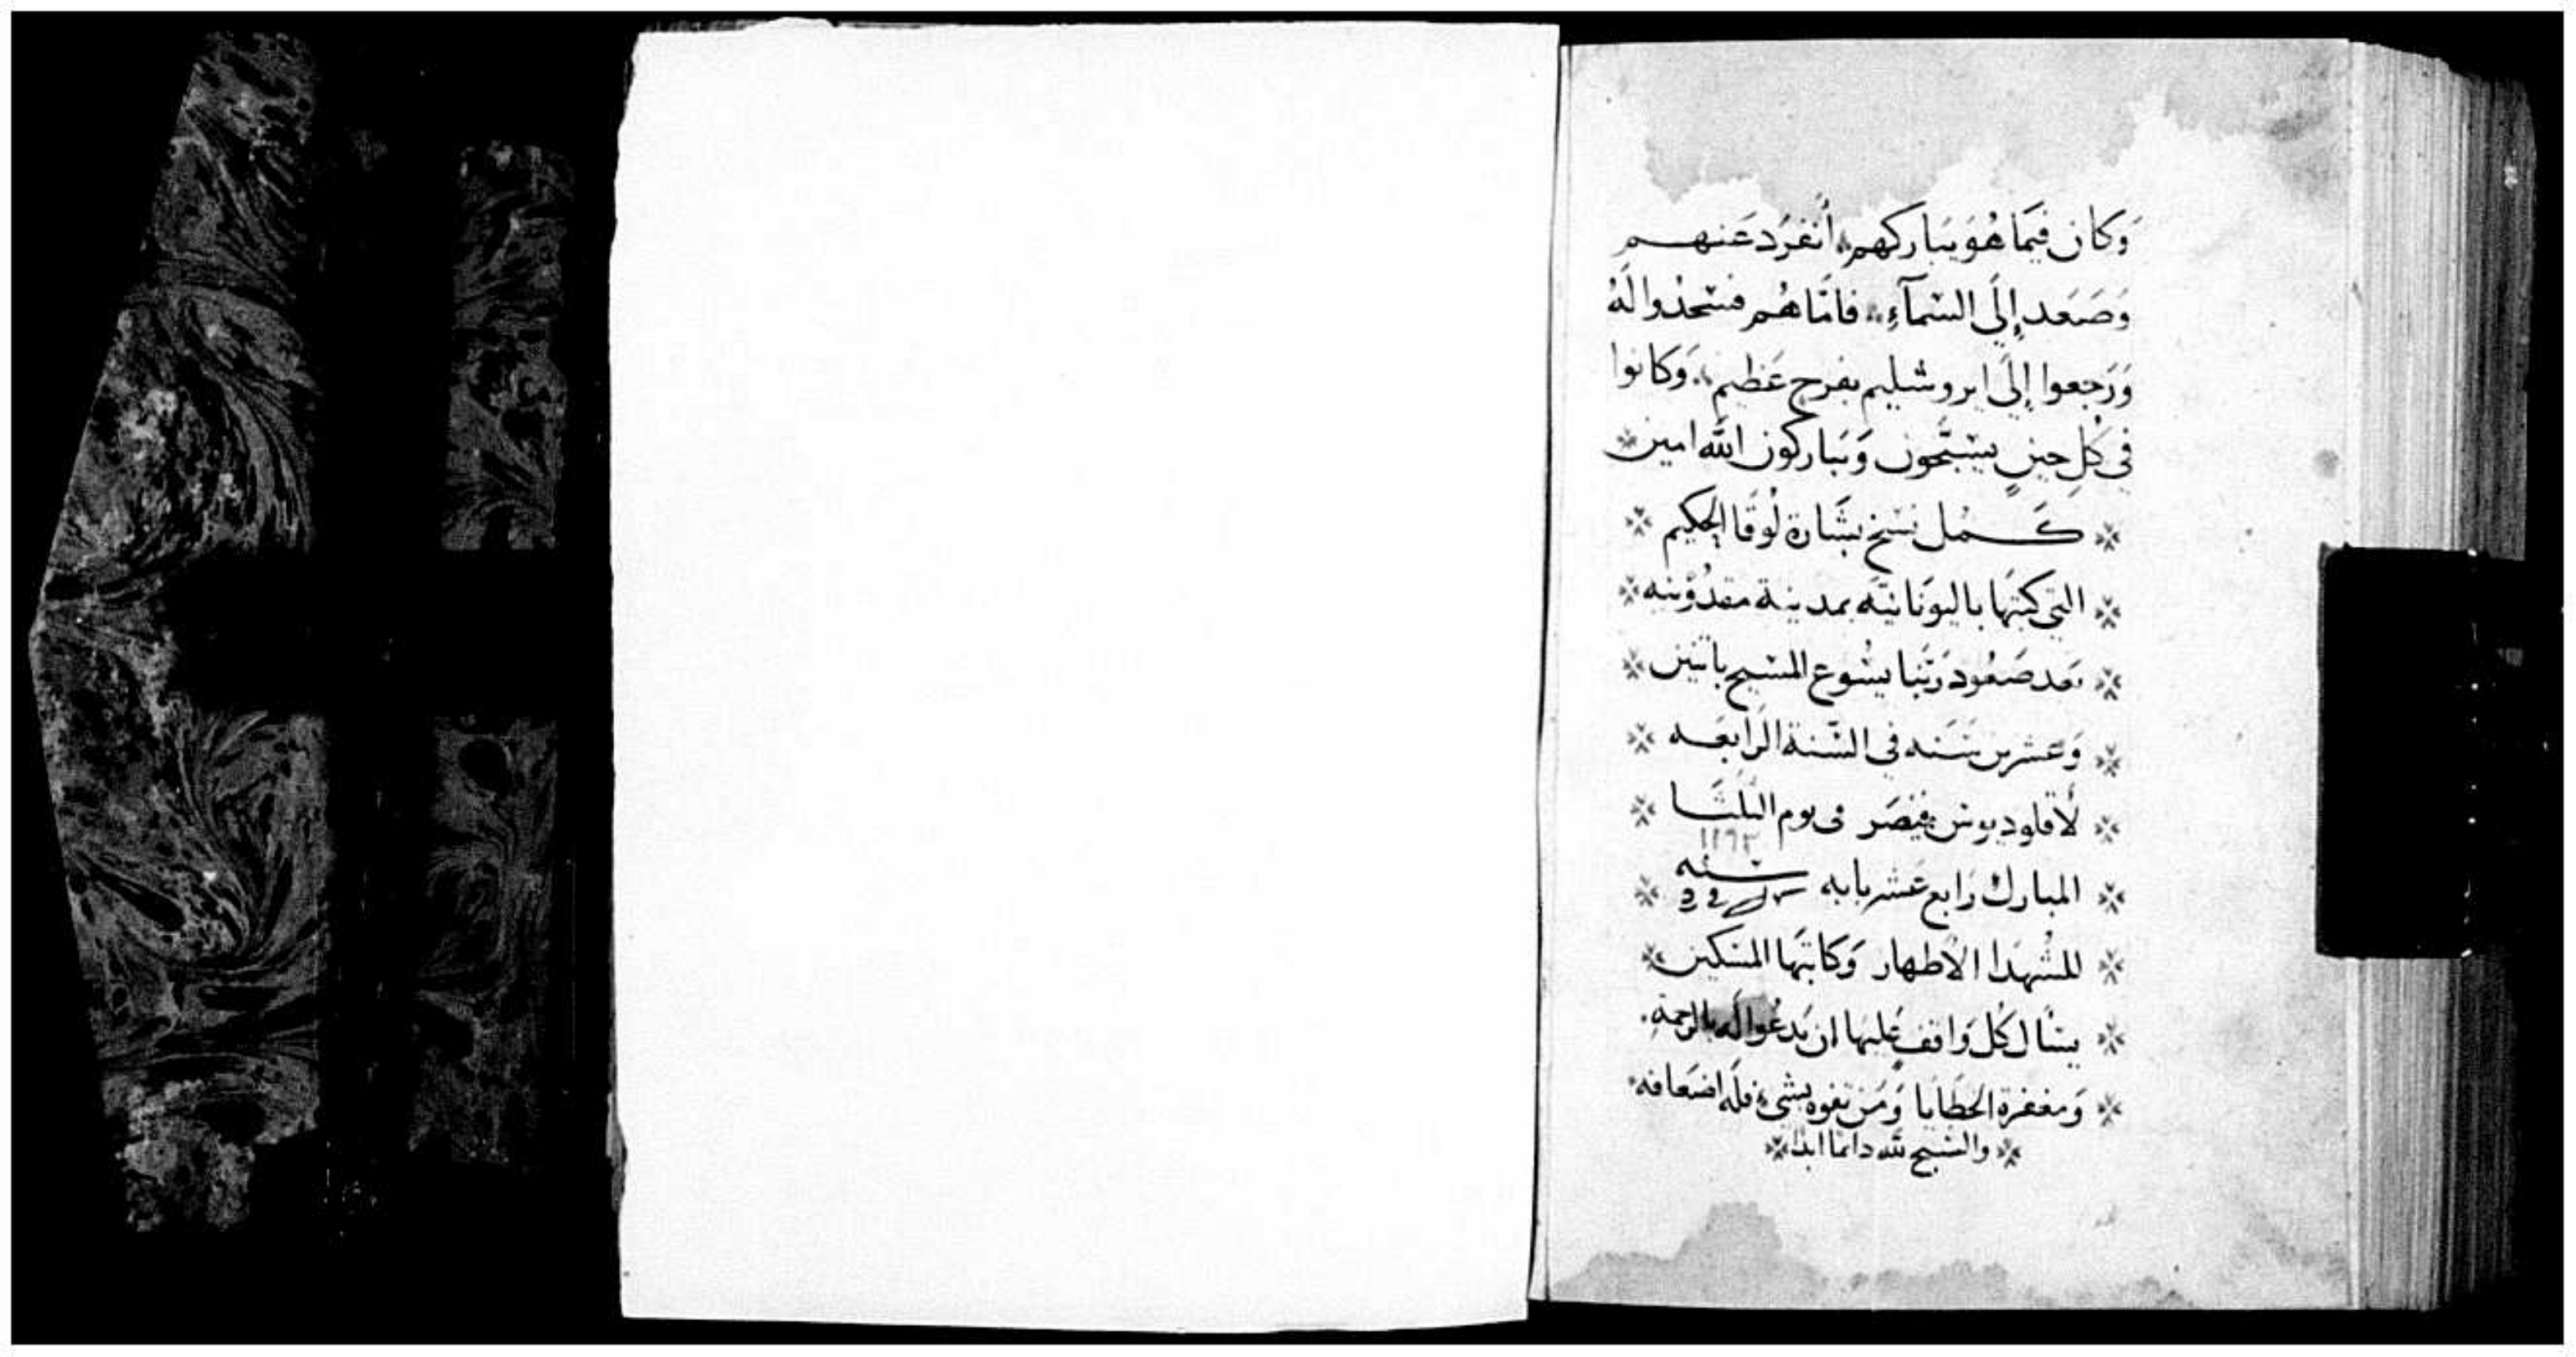 وَكَان فيَمَا هُوَ يبَاركهم أنفرَد عَنهم
وَصَعَد إلَي السّمآءِ فامّا هُم فسَجَدُوا لَهُ
وَرَجعوا إلَي ايروشليم بفرح عَظيم وَكانوا
في كُلِ حينٍ يسَبّحون وَيبَاركون الله امين
كمل نسْخ بشَارة لُوقا الحكيم
التي كتبَها باليونَانيّه بمدينة مقدُونيه
بَعد صَعُود رَبّنا يسُوع المسَيح باثنين
وَعشرين سَنه في السّنة الرَابعَه
لاقلوديوس قيصَر في يوم الثلثَا
١١٩٣
المبارك رَابع عَشر بابه سَنه
للشُهدَا الاطهار وَكاتبَها المسْكين
يسْال كُل وَاقف عَليهَا ان يَدعُوا لَه بالرَحمه
وَمغفرة الخَطَايا وَمَن تفوه بشي فلَه اضعَافه
والتسبيح لله دائما ابدا